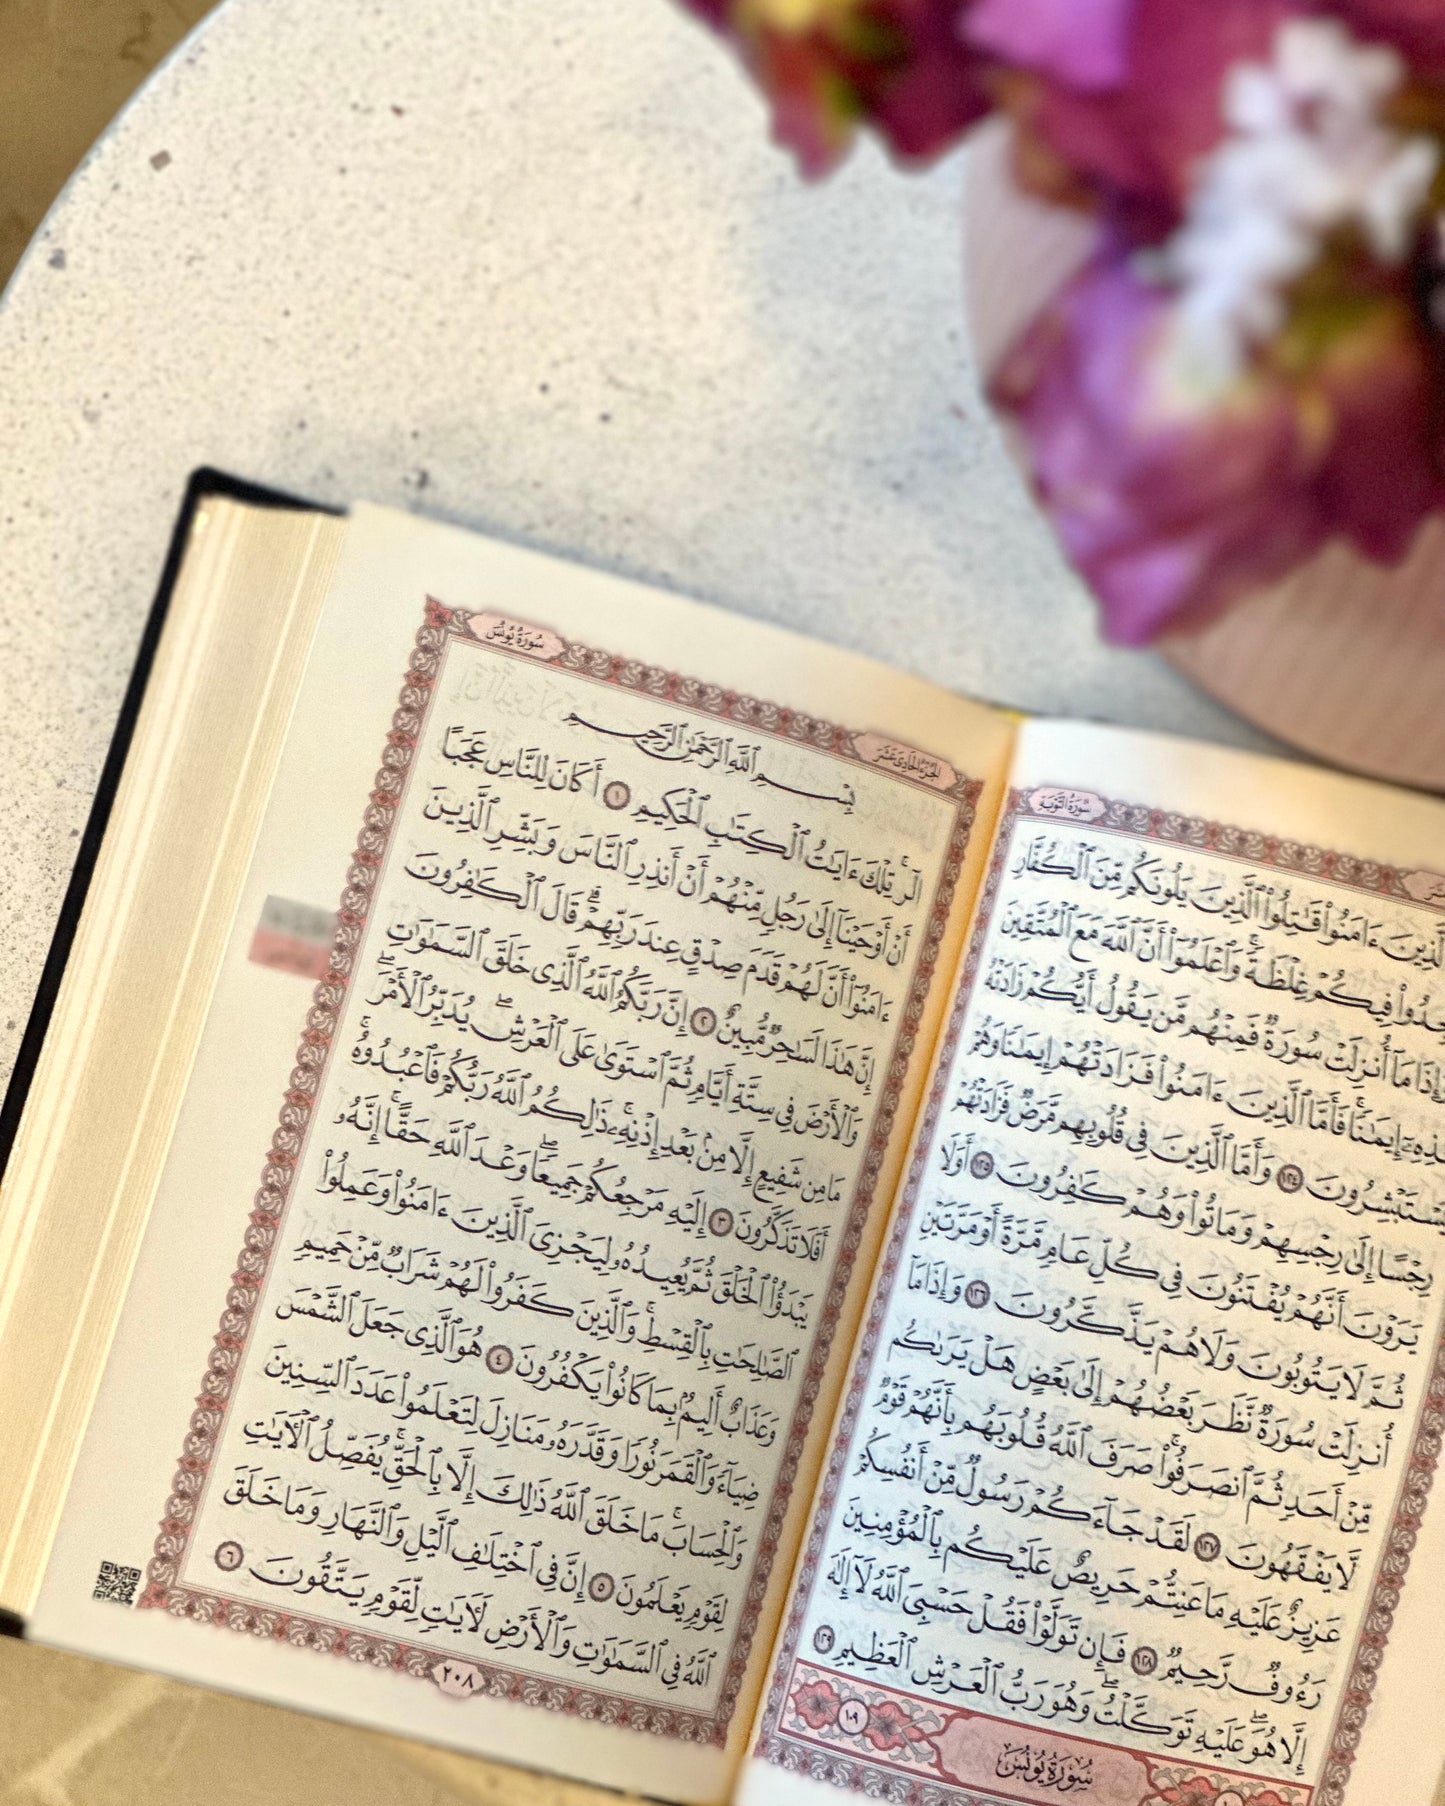 سُورَةُ التَّوْبَةِ
ٱلَّذِينَ ءَامَنُوا۟ قَٰتِلُوا۟ ٱلَّذِينَ يَلُونَكُم مِّنَ ٱلْكُفَّارِ
فِيكُمْ غِلْظَةً ۚ وَٱعْلَمُوٓا۟ أَنَّ ٱللَّهَ مَعَ ٱلْمُتَّقِينَ
وَإِذَا مَآ أُنزِلَتْ سُورَةٌ فَمِنْهُم مَّن يَقُولُ أَيُّكُمْ زَادَتْهُ
إِيمَٰنًا ۚ فَأَمَّا ٱلَّذِينَ ءَامَنُوا۟ فَزَادَتْهُمْ إِيمَٰنًا وَهُمْ
يَسْتَبْشِرُونَ ١٢٤ وَأَمَّا ٱلَّذِينَ فِى قُلُوبِهِم مَّرَضٌ فَزَادَتْهُمْ
رِجْسًا إِلَىٰ رِجْسِهِمْ وَمَاتُوا۟ وَهُمْ كَٰفِرُونَ ١٢٥ أَوَلَا
يَرَوْنَ أَنَّهُمْ يُفْتَنُونَ فِى كُلِّ عَامٍ مَّرَّةً أَوْ مَرَّتَيْنِ
ثُمَّ لَا يَتُوبُونَ وَلَا هُمْ يَذَّكَّرُونَ ١٢٦ وَإِذَا مَآ
أُنزِلَتْ سُورَةٌ نَّظَرَ بَعْضُهُمْ إِلَىٰ بَعْضٍ هَلْ يَرَىٰكُم
مِّنْ أَحَدٍ ثُمَّ ٱنصَرَفُوا۟ ۚ صَرَفَ ٱللَّهُ قُلُوبَهُم بِأَنَّهُمْ قَوْمٌ
لَّا يَفْقَهُونَ ١٢٧ لَقَدْ جَآءَكُمْ رَسُولٌ مِّنْ أَنفُسِكُمْ
عَزِيزٌ عَلَيْهِ مَا عَنِتُّمْ حَرِيصٌ عَلَيْكُم بِٱلْمُؤْمِنِينَ
رَءُوفٌ رَّحِيمٌ ١٢٨ فَإِن تَوَلَّوْا۟ فَقُلْ حَسْبِىَ ٱللَّهُ لَآ إِلَٰهَ
إِلَّا هُوَ ۖ عَلَيْهِ تَوَكَّلْتُ ۖ وَهُوَ رَبُّ ٱلْعَرْشِ ٱلْعَظِيمِ ١٢٩
سُورَةُ يُونُسَ ١٠٩
الجُزْءُ الحَادِي عَشَرَ
سُورَةُ يُونُسَ
بِسْمِ ٱللَّهِ ٱلرَّحْمَٰنِ ٱلرَّحِيمِ
الٓر ۚ تِلْكَ ءَايَٰتُ ٱلْكِتَٰبِ ٱلْحَكِيمِ ١ أَكَانَ لِلنَّاسِ عَجَبًا
أَنْ أَوْحَيْنَآ إِلَىٰ رَجُلٍ مِّنْهُمْ أَنْ أَنذِرِ ٱلنَّاسَ وَبَشِّرِ ٱلَّذِينَ
ءَامَنُوٓا۟ أَنَّ لَهُمْ قَدَمَ صِدْقٍ عِندَ رَبِّهِمْ ۗ قَالَ ٱلْكَٰفِرُونَ
إِنَّ هَٰذَا لَسَٰحِرٌ مُّبِينٌ ٢ إِنَّ رَبَّكُمُ ٱللَّهُ ٱلَّذِى خَلَقَ ٱلسَّمَٰوَٰتِ
وَٱلْأَرْضَ فِى سِتَّةِ أَيَّامٍ ثُمَّ ٱسْتَوَىٰ عَلَى ٱلْعَرْشِ ۖ يُدَبِّرُ ٱلْأَمْرَ ۖ
مَا مِن شَفِيعٍ إِلَّا مِنۢ بَعْدِ إِذْنِهِۦ ۚ ذَٰلِكُمُ ٱللَّهُ رَبُّكُمْ فَٱعْبُدُوهُ ۚ
أَفَلَا تَذَكَّرُونَ ٣ إِلَيْهِ مَرْجِعُكُمْ جَمِيعًا ۖ وَعْدَ ٱللَّهِ حَقًّا ۚ إِنَّهُۥ
يَبْدَؤُا۟ ٱلْخَلْقَ ثُمَّ يُعِيدُهُۥ لِيَجْزِىَ ٱلَّذِينَ ءَامَنُوا۟ وَعَمِلُوا۟
ٱلصَّٰلِحَٰتِ بِٱلْقِسْطِ ۚ وَٱلَّذِينَ كَفَرُوا۟ لَهُمْ شَرَابٌ مِّنْ حَمِيمٍ
وَعَذَابٌ أَلِيمٌۢ بِمَا كَانُوا۟ يَكْفُرُونَ ٤ هُوَ ٱلَّذِى جَعَلَ ٱلشَّمْسَ
ضِيَآءً وَٱلْقَمَرَ نُورًا وَقَدَّرَهُۥ مَنَازِلَ لِتَعْلَمُوا۟ عَدَدَ ٱلسِّنِينَ
وَٱلْحِسَابَ ۚ مَا خَلَقَ ٱللَّهُ ذَٰلِكَ إِلَّا بِٱلْحَقِّ ۚ يُفَصِّلُ ٱلْءَايَٰتِ
لِقَوْمٍ يَعْلَمُونَ ٥ إِنَّ فِى ٱخْتِلَٰفِ ٱلَّيْلِ وَٱلنَّهَارِ وَمَا خَلَقَ
ٱللَّهُ فِى ٱلسَّمَٰوَٰتِ وَٱلْأَرْضِ لَءَايَٰتٍ لِّقَوْمٍ يَتَّقُونَ ٦
٢٠٨